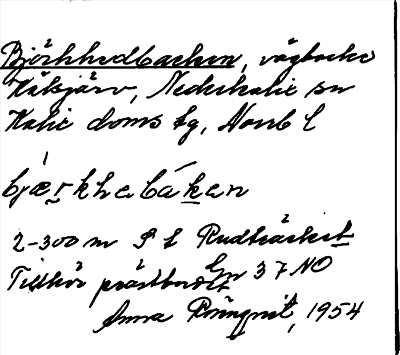 Björkhedbacken, vägbacke
Kälsjärv, Nederkalix sn
Kalix doms tg, Norrb l
bjærkhebákan
2-300 m S t Rudträsket
Tillhör prästbordet 37 NO
Anna Rönnqvist, 1954